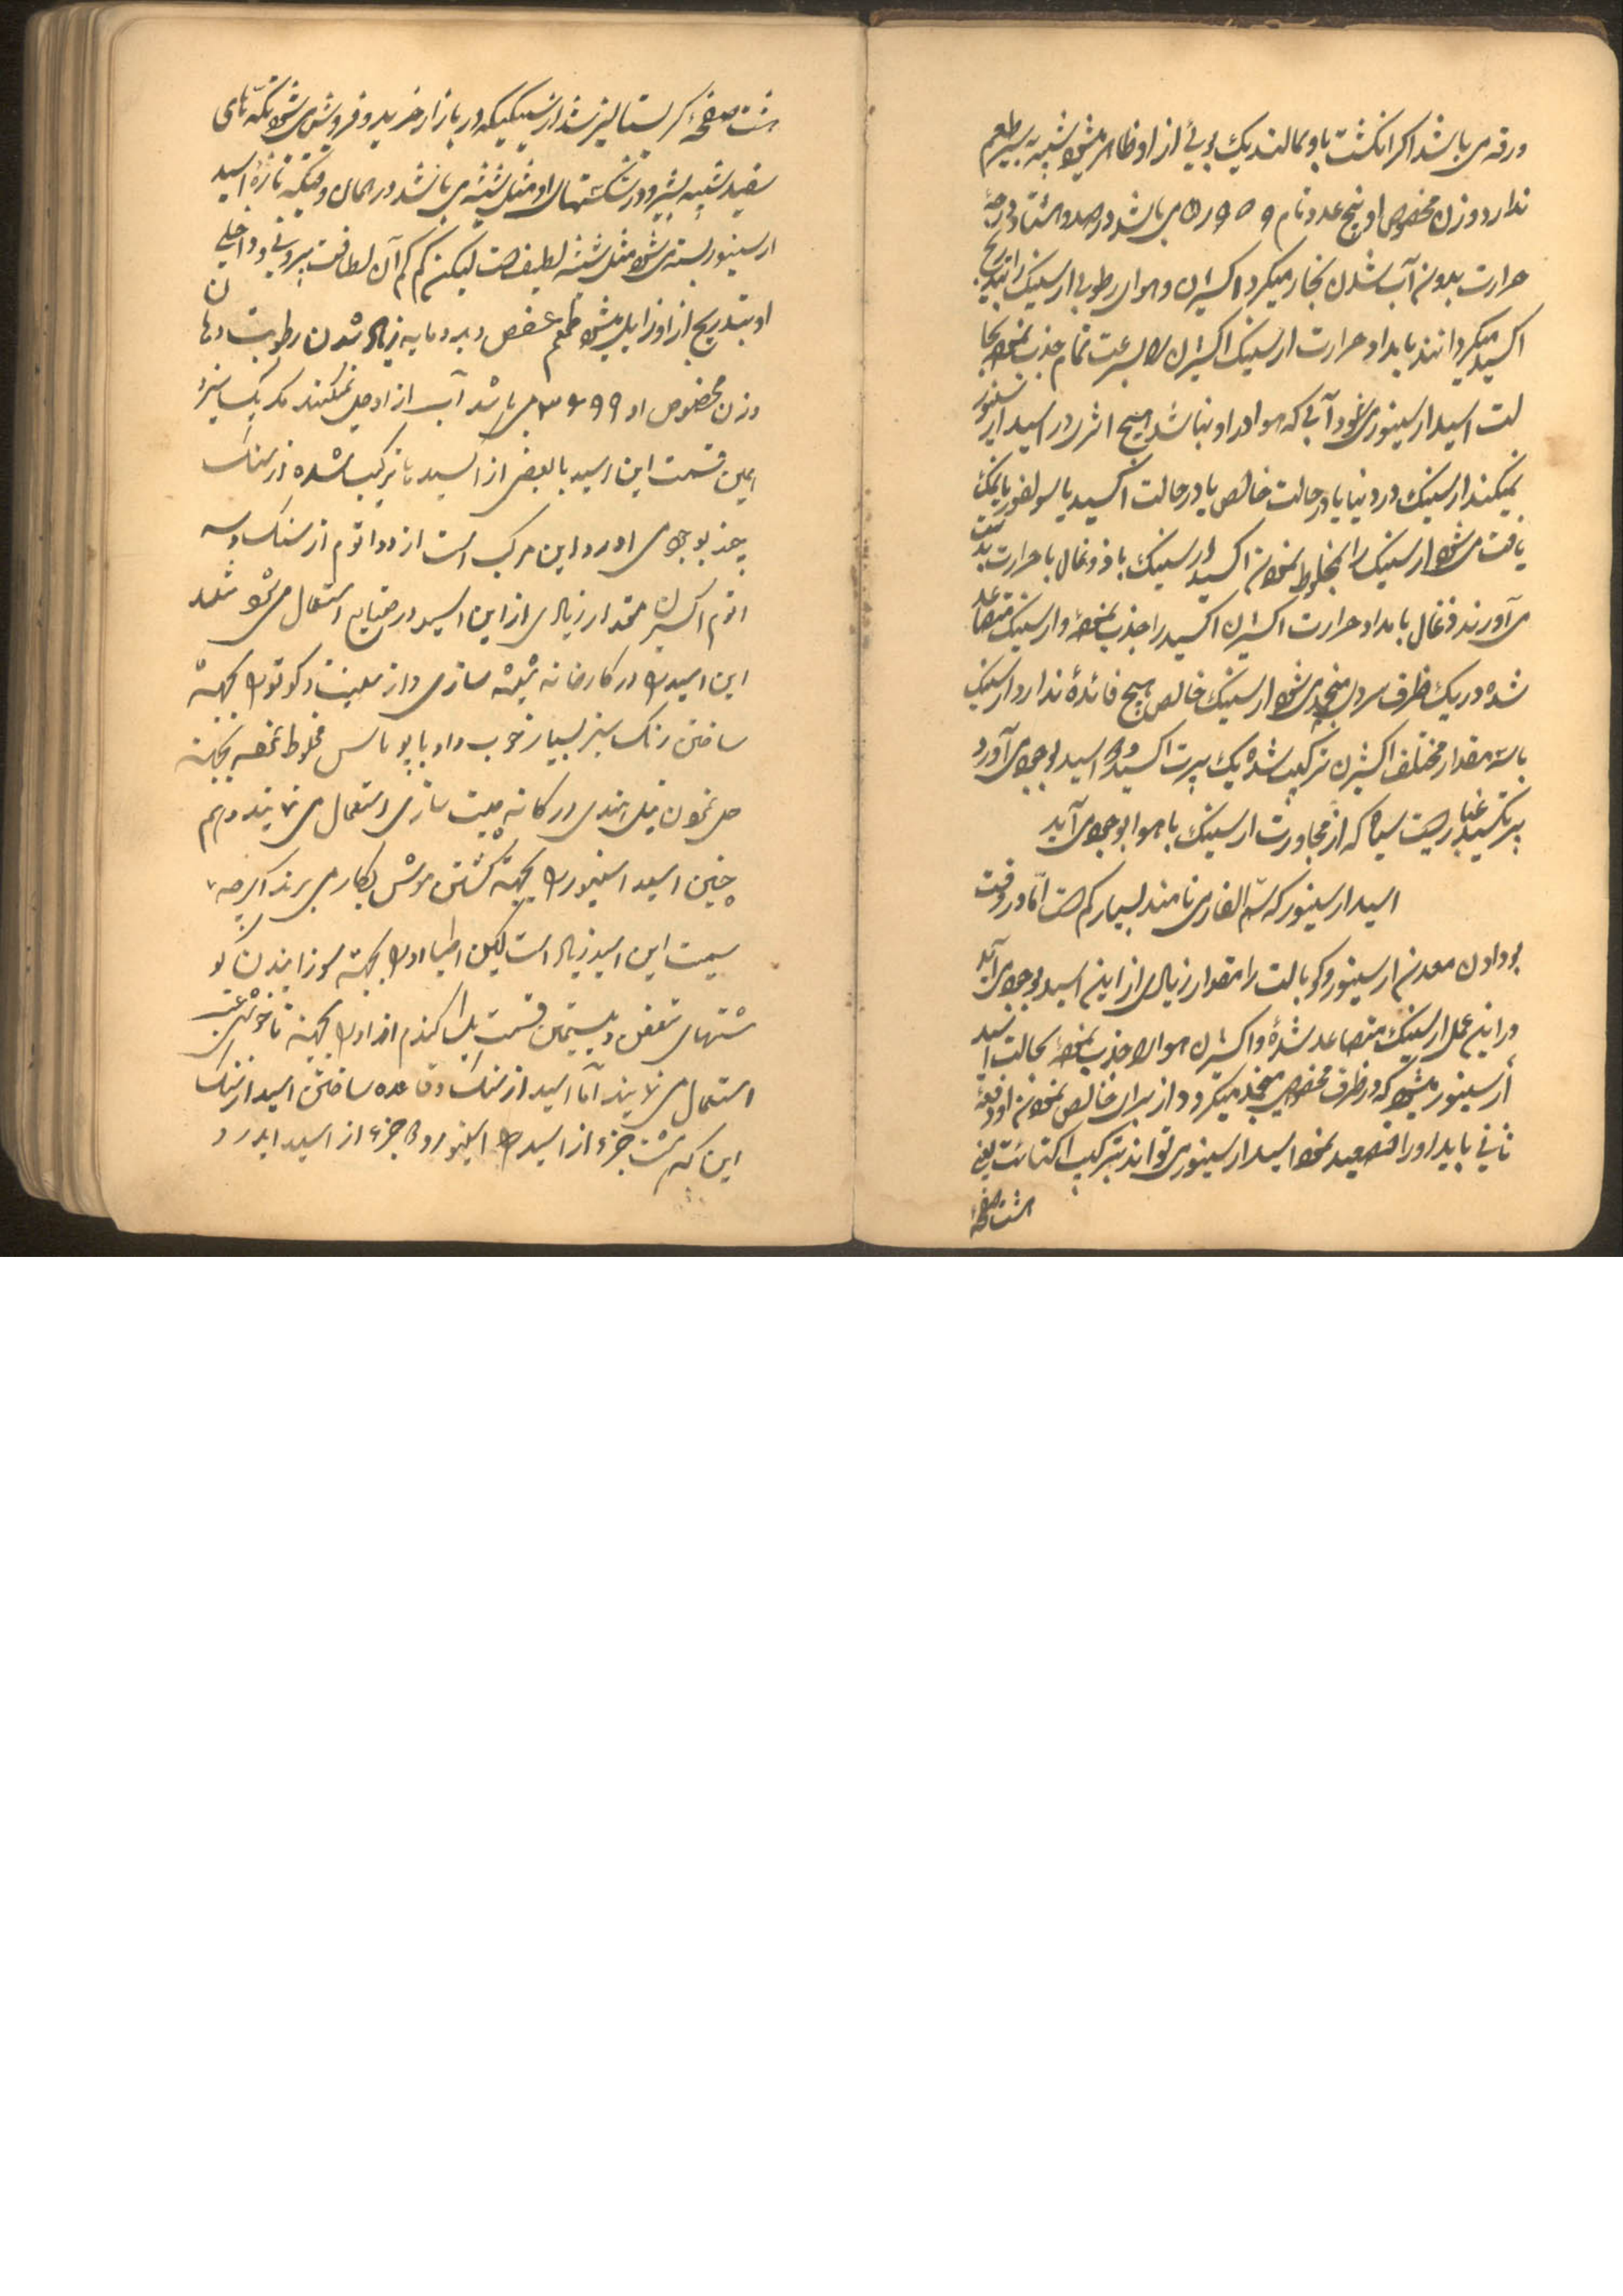 ورقه می باشد اگر انگشت باو بمالند یک بوئی از او ظاهر میشود شبیه بسیر طعم
ندارد وزن مخصوص او پنج عدد تام و ۹۵۹ ر۵ می باشد در صد و هشتاد درجهٔ
حرارت بدون آب شدن بخار میگردد اکسیژن و هوای رطوبی ارسنیک را بتدریج
اکسید میگردانند بامداد حرارت ارسنیک اکسیژن را بسرعت تمام جذب نموده بحا
لت اسید ارسینور می‌رود آبی که هوا در او نباشد هیچ اثر در اسید ارسینور
نمیکند ارسنیک در دنیا یا در حالت خالص یا در حالت اکسید یا سولفور یا نمک
یافت می‌شود ارسنیک را مخلوط نمودن اکسید ارسنیک با ذوغال با حرارت بدست
می آورند ذغال بامداد حرارت اکسیژن اکسید را جذب نموده و ارسنیک متصاعد
شده در یک ظرف سردی منجمد می‌شود ارسنیک خالص هیچ فائدهٔ ندارد ارسنیک
با سه مقدار مختلف اکسیژن ترکیب شده یک پرت اکسید و دو اسید بوجود می آورد
پرتکسید غباریست سیاه که از مجاورت ارسنیک با هوا بوجود می آید
اسید ارسینور که سم الفار می نامند بسیار کم است اما در وقت
بو دادن معدن ارسینور و کوبالت را مقدار زیادی از این اسید بوجود می آید
در این عمل ارسنیک متصاعد شدهٔ و اکسیژن هوا را جذب نمودهٔ بحالت اسید
ارسینور میشود که در ظرف مخصوصی منجمد میگردد از برای خالص نمودن او دفعهٔ
ثانی باید او را تصعید نمود اسید ارسینور می تواند بترکیب اکتائت یعنی
هشت صفحهٔ
هشت صفحهٔ کریستالیز شد ارسینیکیکه در بازار خرید و فروش می‌شود تکّه‌های
سفید شبیه بشیر و در شکستهای او مثل شیشه می باشد در همان وقتیکه تازه اسید
ارسینور بسته می‌شود مثل شیشه لطیف است لیکن کم کم آن لطافت بیرونی و داخلی
او بتدریج از او زایل میشود طعم عفص دارد و مایه زیاد شدن رطوبت دهان
وزن مخصوص او ۳۶۹۹ می باشد آب از او حل نمیکند مگر یک سیزد
همین قسمت این اسید با بعضی از اکسیدها ترکیب شده ارسنیک
چند بوجود می آورد این مرکب است از دو اتوم ارسنیک و سه
اتوم اکسیژن مقدار زیادی از این اسید در صنایع استعمال می‌شود مثلا
این اسید را در کارخانه شیشه سازی و از بجهة
ساختن رنگ سبز بسیار خوب و او با پوتاس مخلوط نموده بجهة
حل نمودن نیل هندی در کارخانه چیت سازی استعمال می نمایند و هم
چنین اسید ارسینور را بجهة کشتن موش بکار می برند اگرچه
سمیت این اسید زیاد است لیکن اطبا او را بجهة سوزانیدن گو
شتهای متعفن و بیستمین قسمت یک گندم از او را بجهة ناخوشی
استعمال می نمایند اما اسید ارسنیک و قاعده ساختن اسید ارسنیک
این که هشت جزء از اسید ارسینور و دو جزء از اسید ایدرو